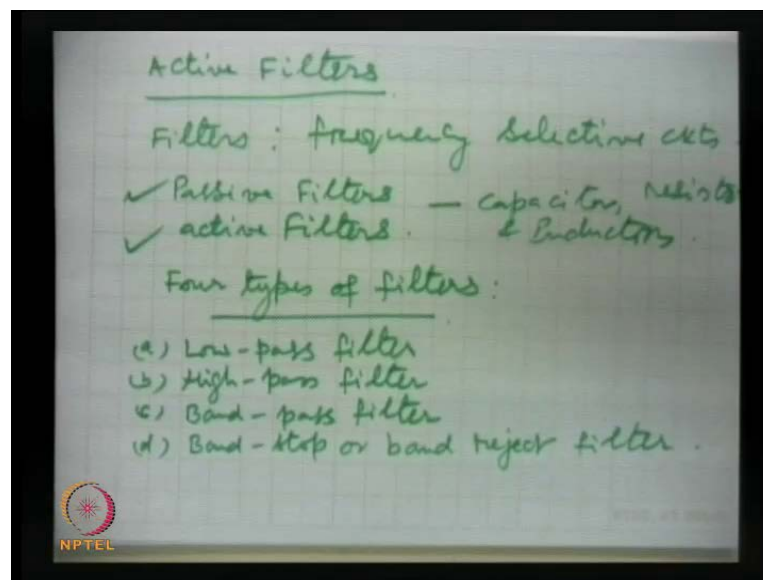 Active Filters
Filters : frequency Selective ckts
✓ Passive Filters — Capacitors, resistors
✓ active Filters. & Inductors.
Four types of filters:
(a) Low-pass filter
(b) High-pass filter
(c) Band-pass filter
(d) Band-stop or band reject filter.
NPTEL